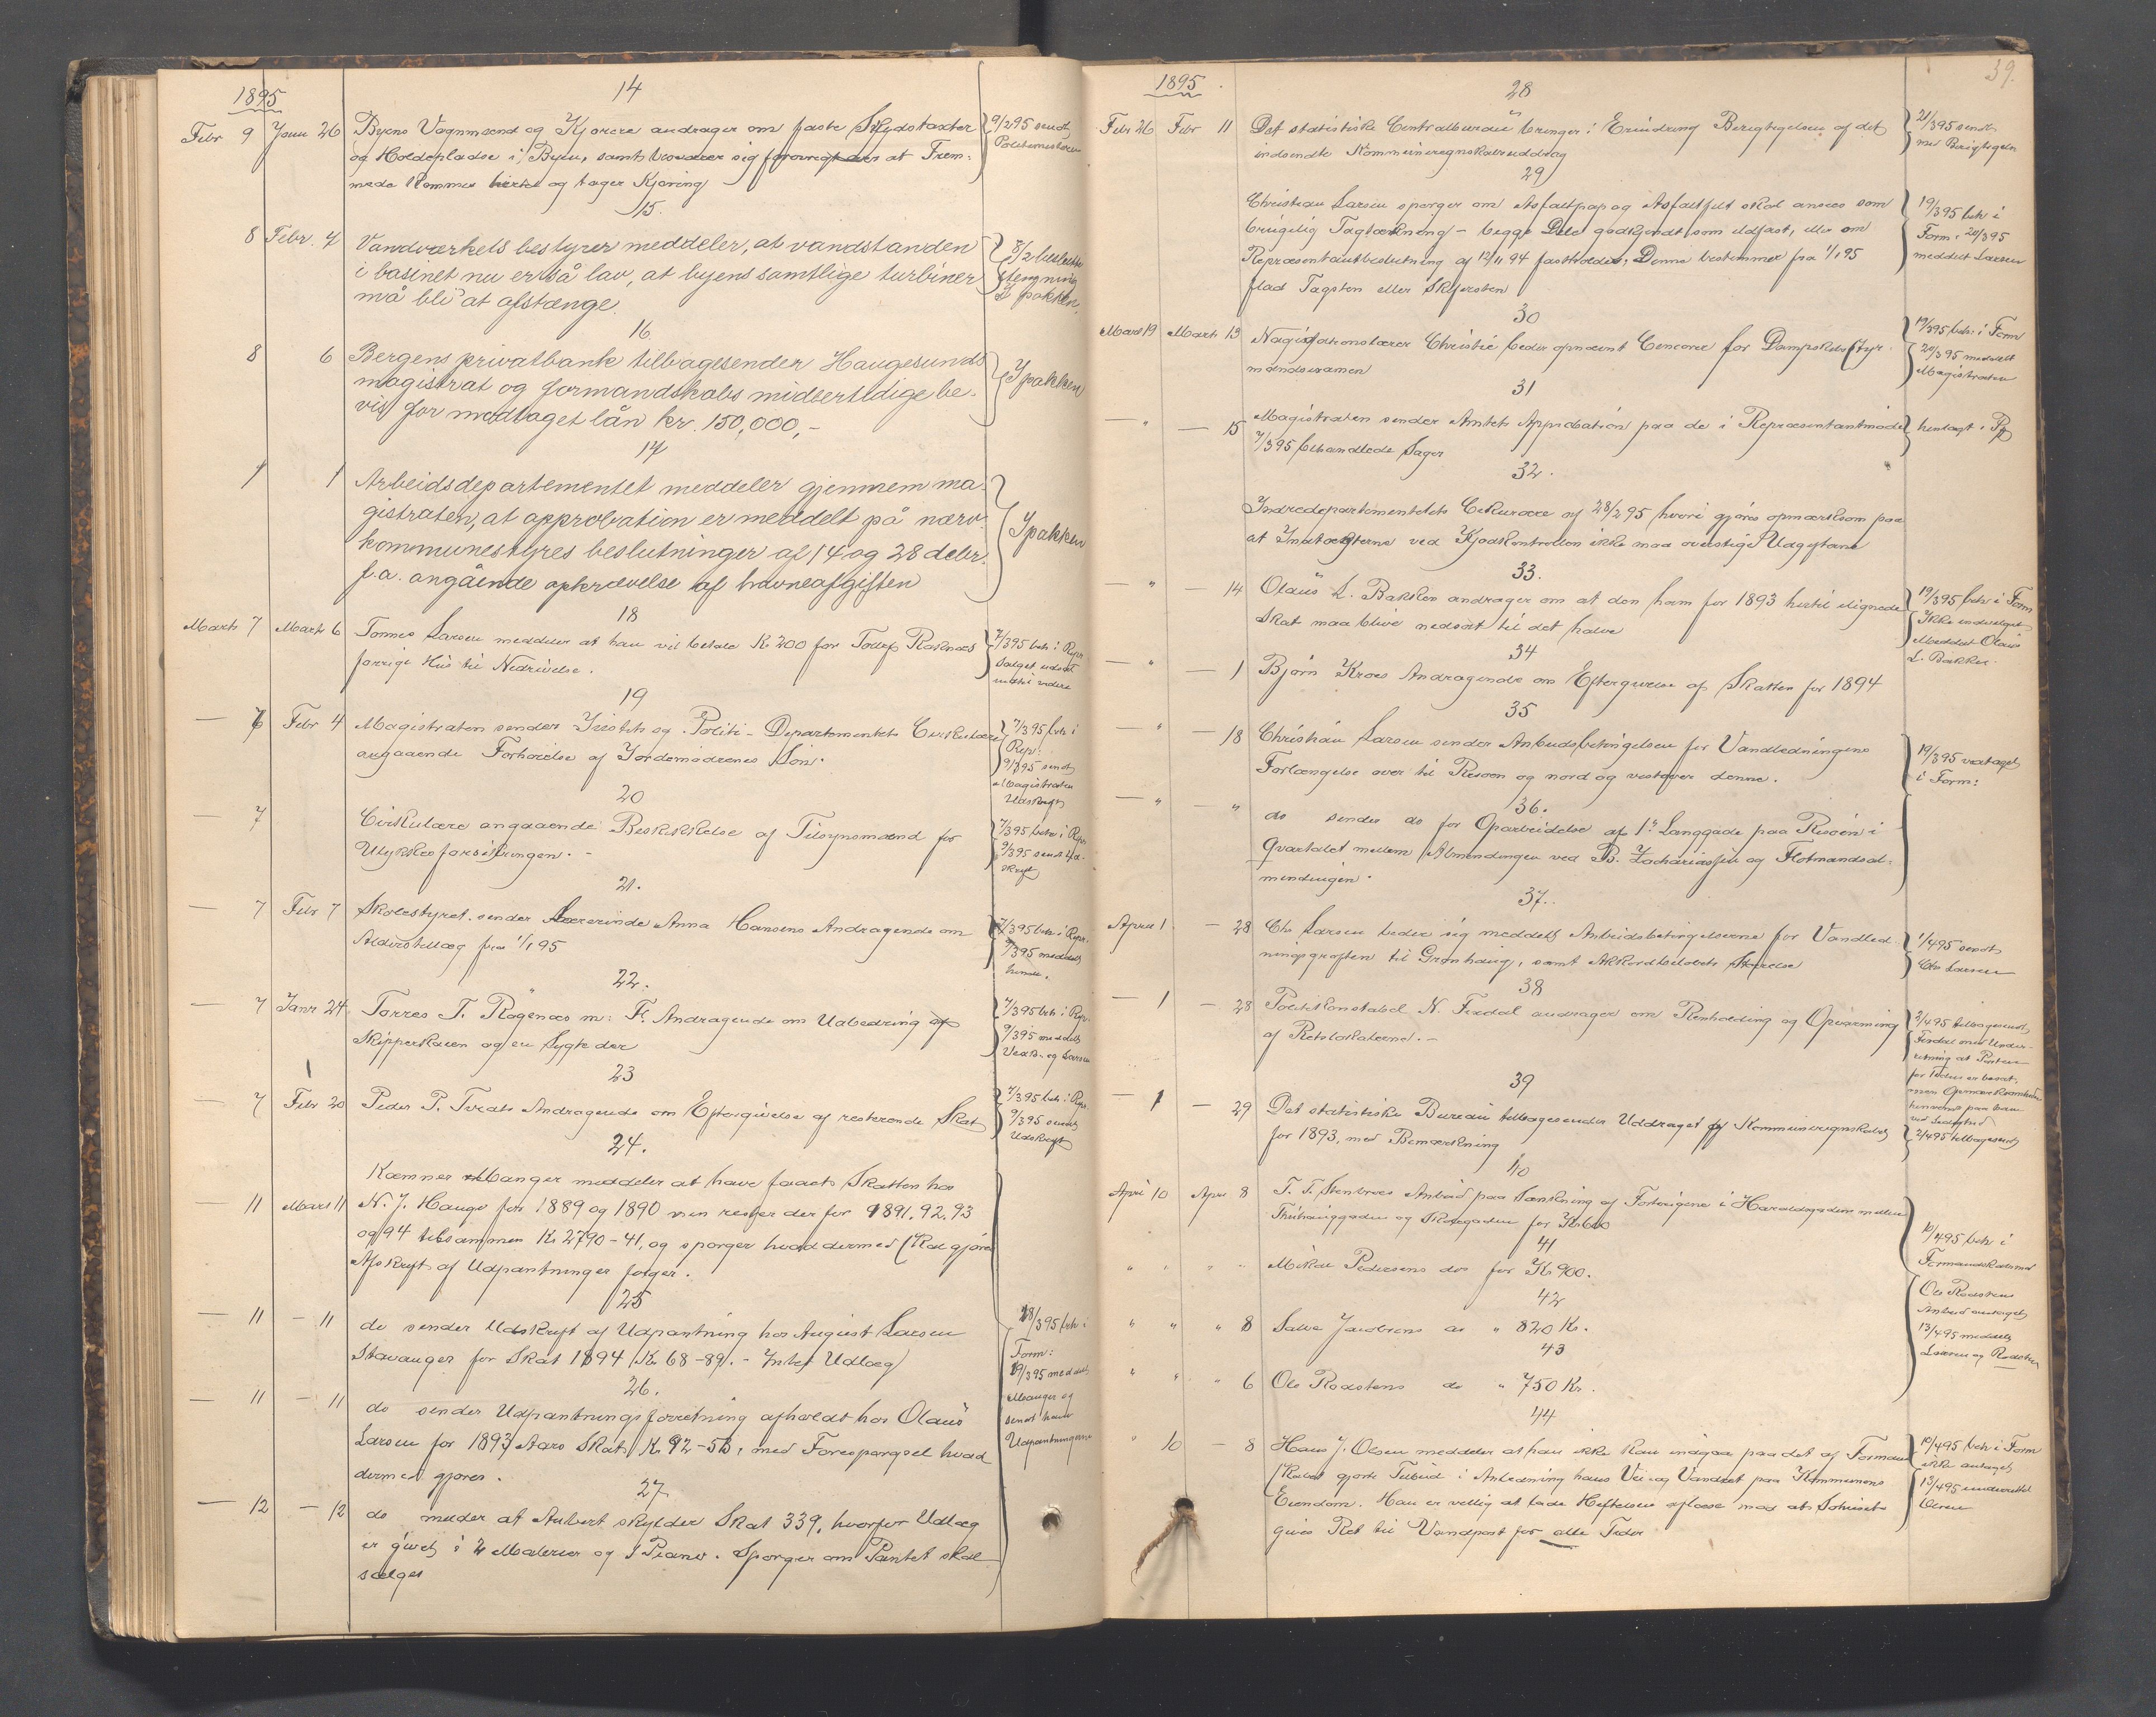 1895
14
Febr 9 Janu 26 Byens Vognmænd og Kjørere andrager om faste Skydstaxter 9/2 95 sendt
og Holdepladse i Byen, samt besværer sig at Frem- Politimesteren
mede kommer og tager Kjøring
15.
8 Febr. 7 Vandværkets bestyrer meddeler, at vandstanden 8/2 besluttet
i basinet nu er så lav, at byens samtlige turbiner stengning
må bli at afstænge. I pakken
16
8 6 Bergens privatbank tilbagesender Haugesunds
magistrat og formandskabs midlertidige be- I pakken
vis for modtaget lån kr. 150,000,-
17
1 1 Arbeidsdepartementet meddeler gjennem ma-
gistraten, at approbation er meddelt på nærv.
kommunestyres beslutninger af 14 og 28 debr. I pakken
f.a. angående opkrævelse af havneafgiften
18
Marts 7 Marts 6 Tønnes Larsen meddeler at han vil betale Kr 200 for 7/3 95 beh i Repr
forrige Hus til Nedrivelse. Salget udsat
indtil videre
19
7 Febr 4 Magistraten sender Justits og Politi-Departementets Cirkulære 7/3 95 beh i
angaaende Forhøielse af Jordemødrenes Løn. Rep:
9/3 95 sendt
Magistraten
Udskrift
20
7 Cirkulære angaaende Beskikkelse af Tilsynsmænd for 7/3 95 beh i Repr
Ulykkesforsikringen. - 9/3 95 sendt Ud-
skrift
21.
7 Febr 7 Skolestyret sender Lærerinde Anna Hansens Andragende om 7/3 95 beh i Repr.
Alderstillæg fra 1/1 95 9/3 95 meddelt
hende.
22.
7 Janr 24 Torres T. Røgenæs m: Fl. Andragende om Udbedring af 7/3 95 beh i Repr.
Skipperkaien og en Lygte der 9/3 95 meddelt
og Larsen
23
7 Febr 20 Peder P. Tveits Andragende om Eftergivelse af resterende Skat 7/3 95 beh i Repr
9/3 95 sendt
Udskrift
24.
Kæmner Manger meddeler at have faaet Skatten hos
11 Mars 11 N. J. Hauge for 1889 og 1890 men rester der for 1891. 92. 93
og 94 tilsammen Kr 2790-41, og spørger hvad dermed skal gjøres
Afskrift af Udpantninger følger.
25
11 - 11 do sender Udskrift af Udpantning hos August Larsen 18/3 95 beh i
Stavanger for Skat 1894 Kr 68-89. - Intet Udlæg Form:
19/3 95 meddelt
26.
11 - 11 do sender Udpantningsforretning afholdt hos Olaus Manger og
Larsen for 1893 Aars Skat Kr 92-53, med Forespørgsel hvad sendt ham
dermed gjøres. Udpantningerne
27
12 - 12 do melder at Aubert skylder Skat 339, hvorfor Udlæg
er givet i 2 Malerier og 1 Piano. Spørger om Pantet skal
sælges
39.
1895.
28
Febr 26 Febr 11 Det statistiske Centralbureau bringer i Erindring Berigtigelsen af det 21/3 95 sendt
indsendte Kommuneregnskabsuddrag med Berigtigelse
29
Christian Larsen spørger om Asfaltpap og Asfaltfilt skal ansees som 19/3 95 beh i
brugelig Tagtækning - begge Dele godkjendt som ildfast, eller om Form: 20/3 95
Repræsentantbeslutning af 12/11 94 fastholdes, Denne bestemmer fra 1/1 95 meddelt Larsen
flad Tagsten eller Skifersten
30
Mars 19 Marts 13 Navigationslærer Christie beder opnævnt Censorer for Dampskibsstyr- 19/3 95 beh i Form
mandsexamen 20/3 95 meddelt
Magistraten
31
- " - 15 Magistraten sender Amtets Approbation paa de i Repræsentantmøde henlagt i Pk
7/3 95 behandlede Sager
32.
Indredepartementets Cirkulære af 28/2 95 hvori gjøres opmærksom paa
at Indtægterne ved Kjødkontrollen ikke maa overstige Udgifterne
33.
- " - 14 Olaus L. Bakken andrager om at den ham for 1893 hertil ilignede 19/3 95 beh i Form
Skat maa blive nedsat til det halve Ikke indvilget
Meddelt Olaus
L. Bakken.
34
- " - 1 Bjørn Kroes Andragende om Eftergivelse af Skatten for 1894
35
- " - 18 Christian Larsen sender Anbudsbetingelsen for Vandledningens 19/3 95 vedtaget
Forlængelse over til Risøen og nord og vestover denne. i Form:
36.
- " - " do sender do for Oparbeidelse af 1ste Langgade paa Risøen i
Qvartalet mellem Almendingen ved B. Zachariassen og Flotmandsal-
mindingen.
37.
April 1 - 28 Chr Larsen beder sig meddelt Anbudsbetingelserne for Vandled- 1/4 95 sendt
ningsgrøften til Grønhaug, samt Akkordbeløbets Størrelse Chr Larsen
38
- 1 - 28 Politikonstabel N. Fixdal andrager om Renholding og Opvarming 2/4 95 tilbagesendt
af Retslokalerne. - Fixdal med Under-
retning at Posten
for Tiden er besat,
39
- 1 - 29 Det statistiske Bureau tilbagesender Uddraget af Kommuneregnskabet
for 1893, med Bemærkning 2/4 95 tilbagesendt
40
April 10 April 8 T. T. Stenbroes Anbud paa Sænkning af Fortougene i Haraldsgaden mellem
og Skolegaden for Kr 600 10/4 95 beh i
Formandskabsmøde
41
" " " " Mikal Pedersens do for Kr 900.
Ole Rødstens
Anbud antaget
42
" " " 8 Salve Jacobsens do " 820 Kr. 13/4 95 meddelt
Larsen og Rødsten
43
" " " 6 Ole Rødstens do " 750 Kr.
44
" 10 - 8 Hans J. Olsen meddeler at han ikke kan indgaa paa det af Formand- 10/4 95 beh i Form
skabet gjorte Tilbud i Anledning hans Vei- og Vandret paa Kommunens ikke antaget
Eiendom. Han er villig at lade Heftelsen aflæse mod at Schweets 13/4 95 underrettet
gives Ret til Vandpost for alle Tider Olsen